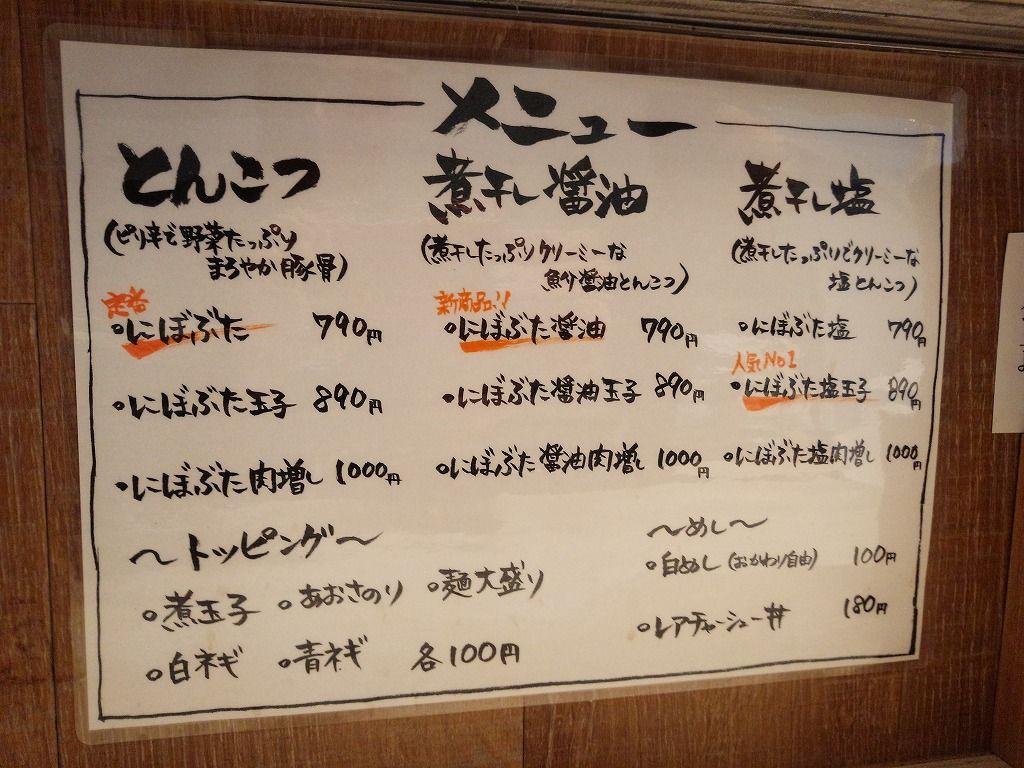 メニュー
とんこつ
(ピリ辛で野菜たっぷり
まろやか豚骨)
定番
・にぼぶた 790円
・にぼぶた玉子 890円
・にぼぶた肉増し 1000円
煮干し醤油
(煮干したっぷりクリーミーな
魚介醤油とんこつ)
新商品!!
・にぼぶた醤油 790円
・にぼぶた醤油玉子 890円
・にぼぶた醤油肉増し 1000円
煮干し塩
(煮干したっぷりでクリーミーな
塩とんこつ)
・にぼぶた塩 790円
人気No1
・にぼぶた塩玉子 890円
・にぼぶた塩肉増し 1000円
〜トッピング〜
・煮玉子 ・あおさのり ・麺大盛り
・白ネギ ・青ネギ 各100円
〜めし〜
・白めし (おかわり自由) 100円
・レアチャーシュー丼 180円